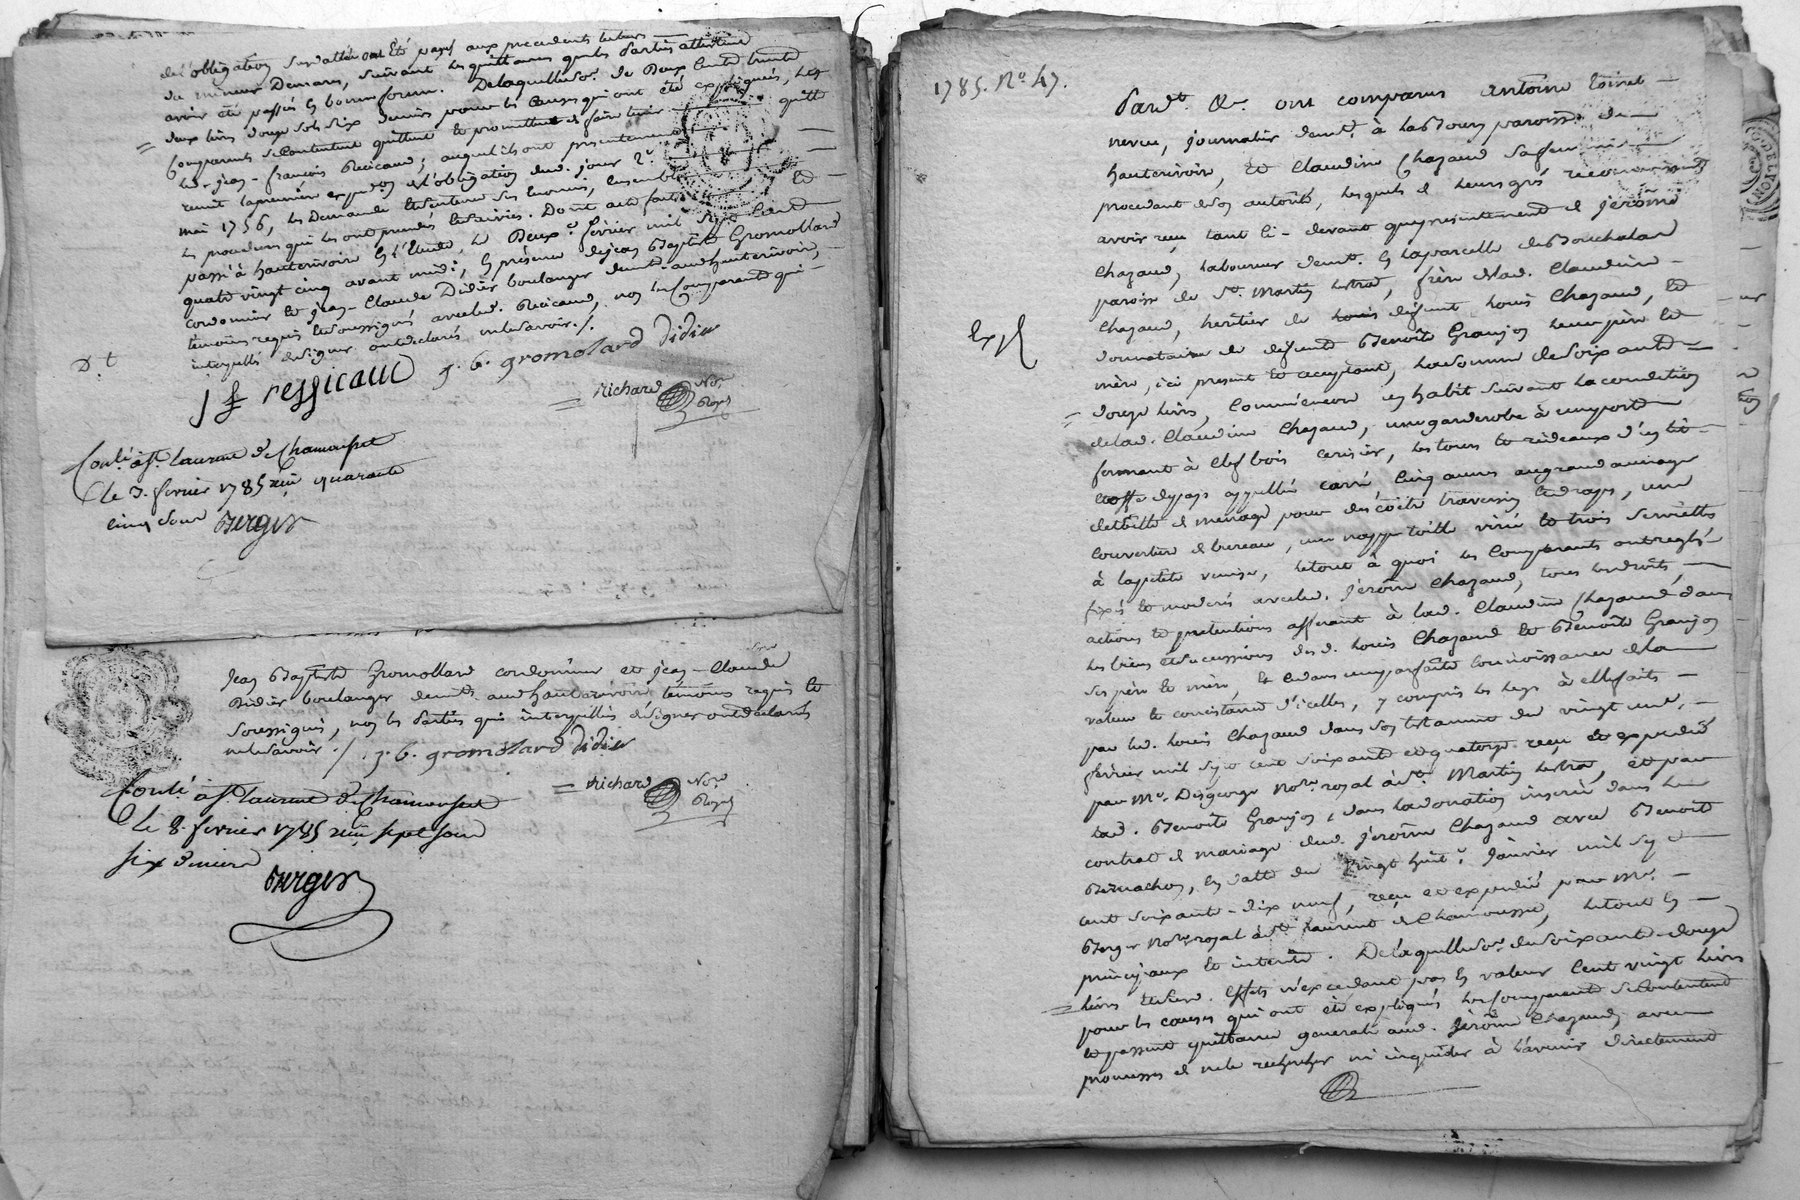 de l'obligation susdattée ont été payés aux precedents
du mineur Demare, suivant les quittances que les parties attestent
avoir été passées en bonne forme. De laquelle so.e de Deux Cents trente
deux livres douze sols six deniers pour les causes qui ont été expliquées, les
Comparants se Contentent quittent et promettent faire tenir quitte
led. jean-françois Ressicaud, auquel ils ont presentement
remit la premiere expp.on de l'obligation dud. jour 2.e
mai 1756, les Demande et sentence ses Ensemble
les procedures qui les ont precedés et suivies. Dont acte fait et
passé à hauterivoire en l'Etude, le Deux.e février mil sept Cent
quatre vingt cinq avant midi, en présence de jean Baptiste Gromollard
cordonnier et jean-Claude Didier boulanger demt. aud. hauterivoire,
témoins requis et soussignés avec led. Ressicaud, non les Comparants qui
interpellés de signer ont declarés ne le savoir ./.
D.t
J f ressicaud j. b. gromolard Didier
Richard No.re Royal
Conlé. à St. Laurent de Chamousset
le 3. fevrier 1785 reçu quarante
cinq sous Berger
Jean Baptiste Gromollard cordonnier et jean-Claude
Didier boulanger demts. aud. hauterivoire témoins requis et
soussignés, non les parties qui interpellées de signer ont declarés
ne le savoir ./. j. b. gromolard Didier
Richard No.re Royal
Conlé. à St. Laurent de Chamousset
Le 8. fevrier 1785 reçu sept sous
six deniers
Berger
1785. No. 47.
Pardt. &c. ont comparus antoine toinet
neveu, journalier demt. à paroisse de
hauterivoire, Et Claudine Chazaud sa femme
procedant de son autorité, lesquels de leurs grés reconnoissent
avoir reçu tant ci-devant que presentement de jerôme
Chazaud, laboureur demt. en la parcelle de Bouchalas
paroisse de St. Martin lestra, frère de lad. Claudine
Chazaud, heritier de louis defunt louis Chazaud, et
donnataire de defunte Benoite Granjon leurs père et
mère, ici present et acceptant, la somme de soixante
douze livres,
de lad. Claudine Chazaud, une garderobe à une porte
fermant à clef bois cerisier, les tours et rideaux d'un lit
etoffe du pays appellée carré cinq aunes au grand aunage
de toille de ménage pour des coëtre traversin et draps, une
couverture de bureau, une nappe toille virée et trois serviettes
à la petite venise, le tout à quoi les Comparants ont reglés
fixés et moderés avec led. jerôme Chazaud, tous les droits,
actions et pretentions afferant à lad. Claudine Chazaud dans
les biens et successions desd. louis Chazaud et Benoite Granjon
ses père et mère, et eu dans une parfaite connoissance de la
valeur et consistance d'icelles, y compris les legs à elle faits
par led. louis Chazaud dans son testament du vingt une.
février mil sept cent soixante et quatorze reçu et expedié
par Me. Desgorge No.re royal à St. Martin lestra, et par
lad. Benoite Granjon, dans la donation inserée dans le
contrat de mariage dud. jerôme Chazaud avec Benoite
Bernachon, en datte du vingt huit.e janvier mil sept
cent soixante-dix neuf, reçu et expedié par Me.
Berger No.re royal à St. laurent de Chamousset, le tout en
principaux et interêts. De laquelle so.e de soixante-douze
livres et desd. effets n'excedant pas en valeur Cent vingt livres
pour les causes qui ont été expliquées les Comparants se Contentent
et passent quittance generale aud. jerôme Chazaud, avec
promesses de ne le rechercher ni inquiéter à l'avenir directement